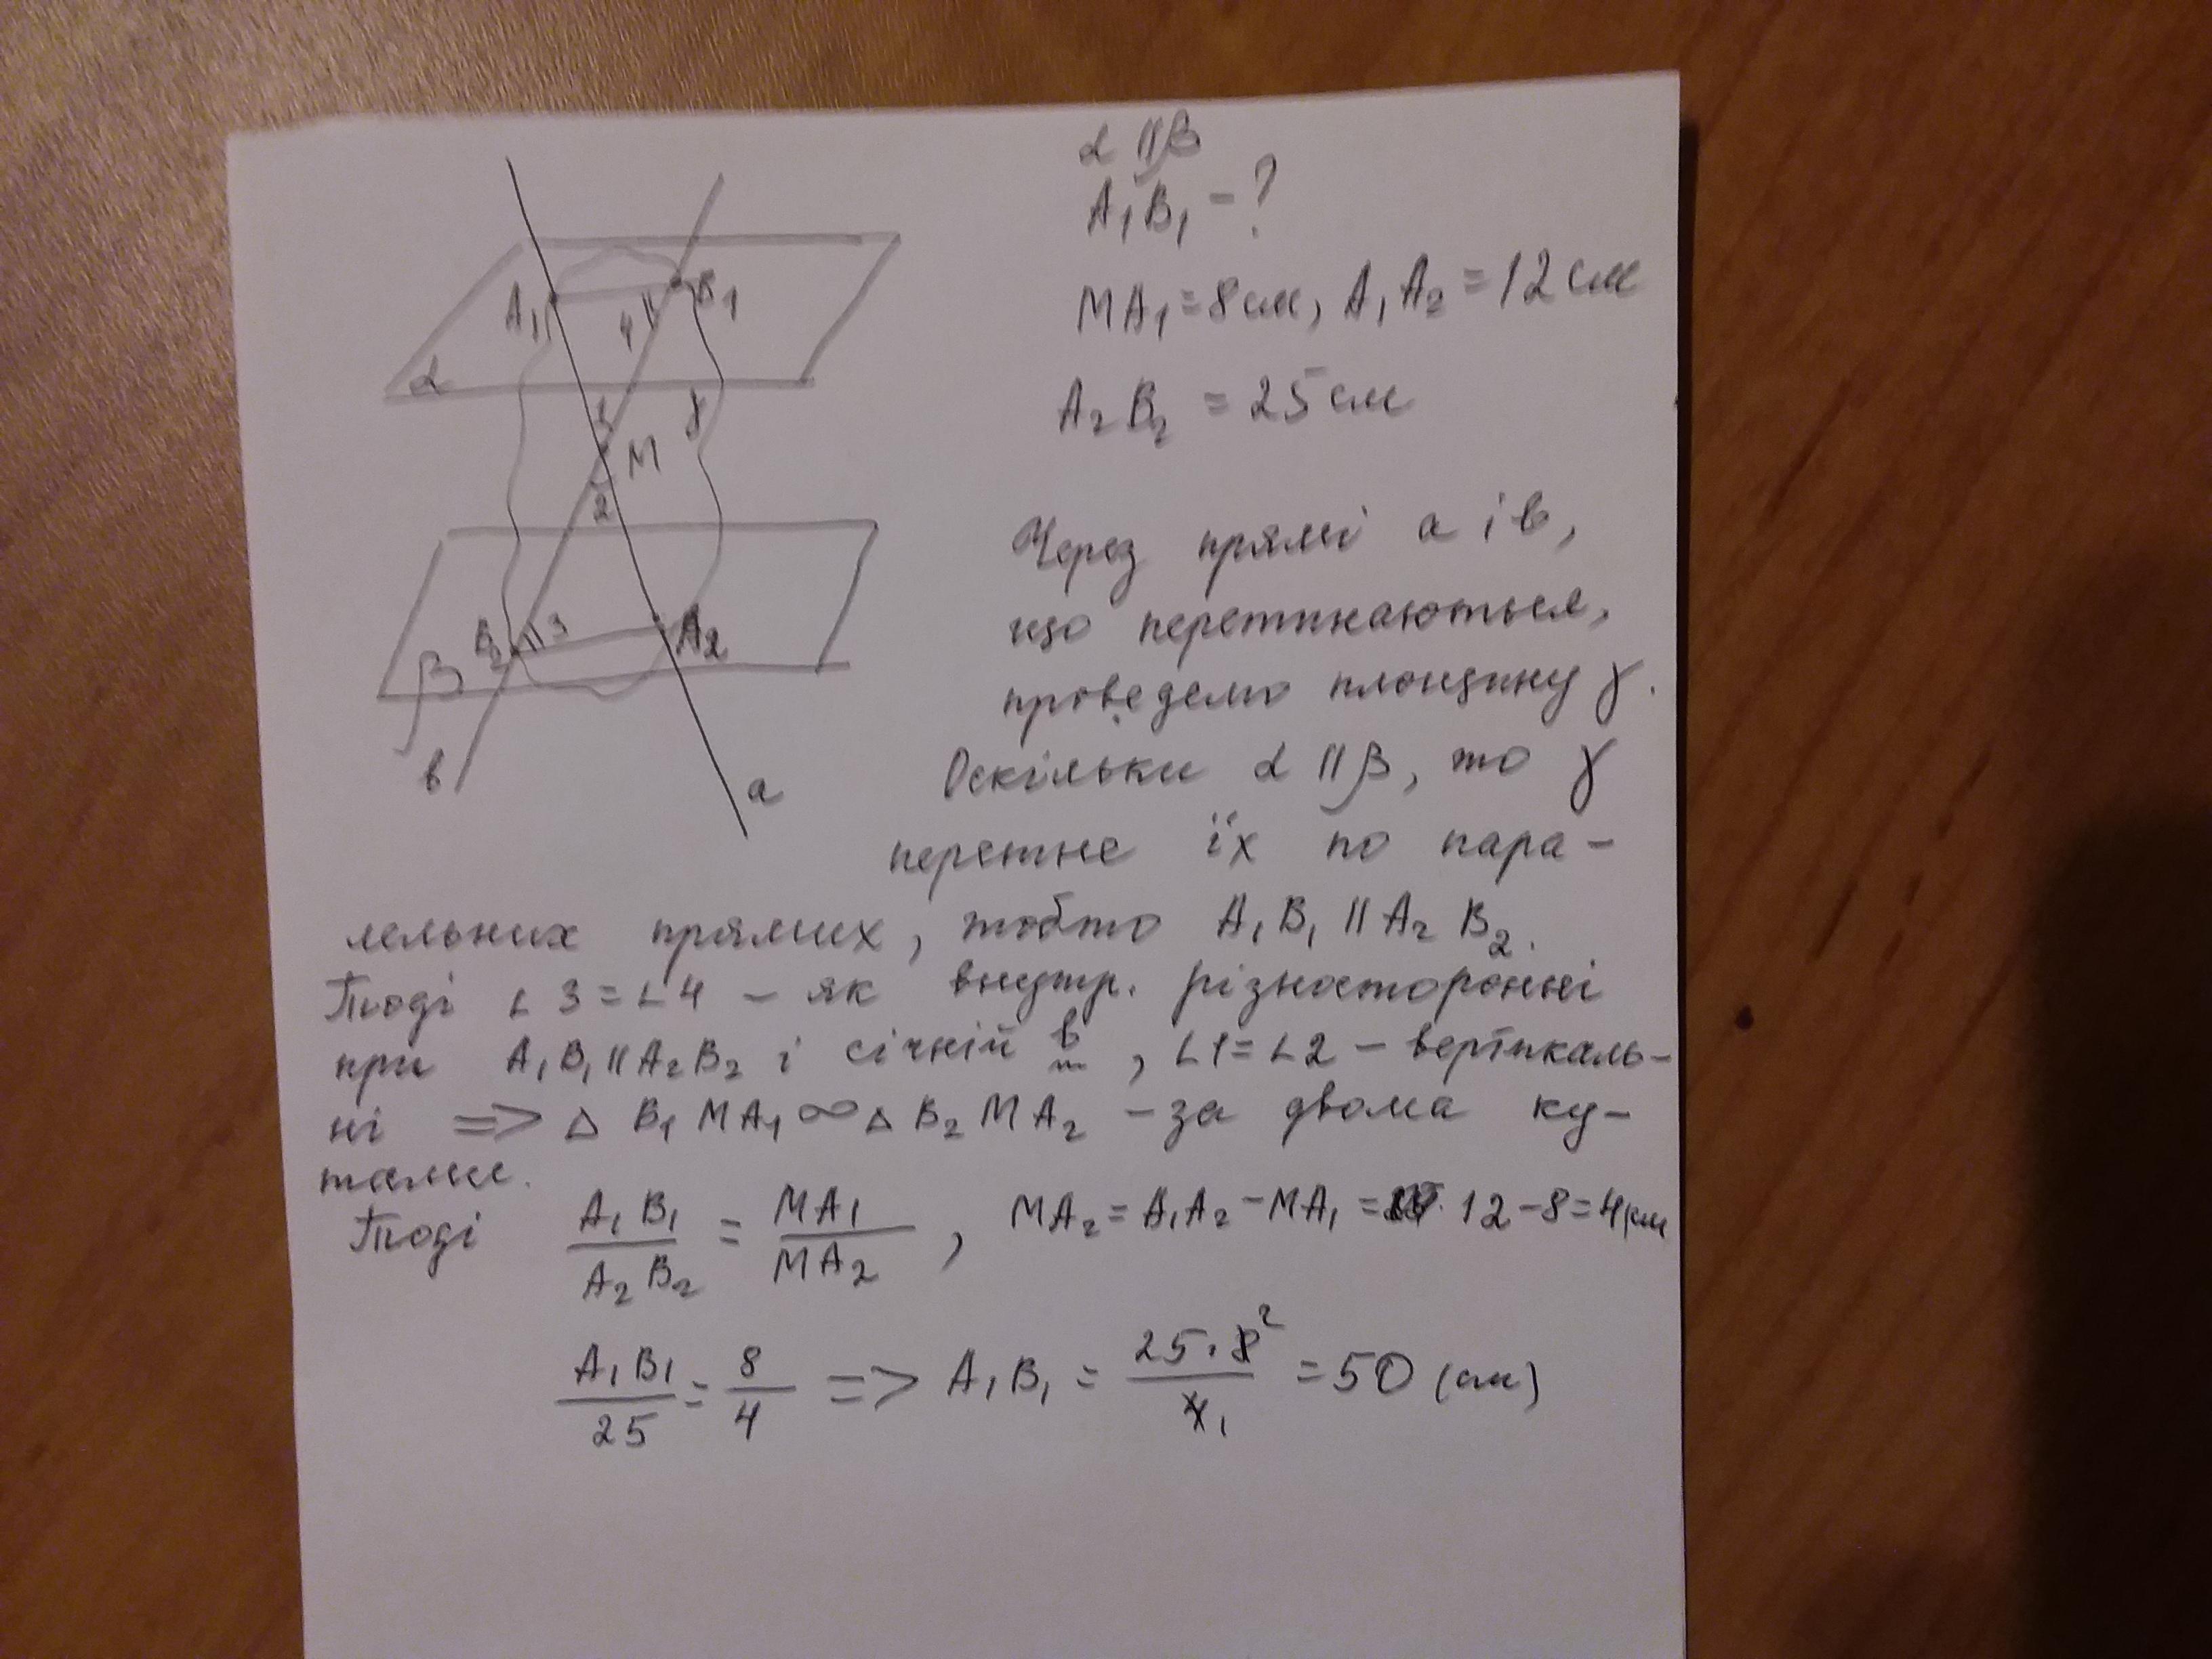 α || β
A₁B₁ - ?
MA₁ = 8 см, A₁A₂ = 12 см
A₂B₂ = 25 см
A₁
B₁
4
α
1
γ
M
2
B₂
3
A₂
β
в
a
Через прямі a і в,
що перетинаються,
проведемо площину γ.
Оскільки α || β, то γ
перетне їх по пара-
лельних прямих, тобто A₁B₁ || A₂B₂.
Тоді ∠3 = ∠4 - як внутр. різносторонні
при A₁B₁ || A₂B₂ і січній в, ∠1 = ∠2 - вертикаль-
ні => Δ B₁MA₁ ∞ Δ B₂MA₂ - за двома ку-
тами.
Тоді A₁B₁/A₂B₂ = MA₁/MA₂, MA₂ = A₁A₂ - MA₁ = 12 - 8 = 4 см
A₁B₁/25 = 8/4 => A₁B₁ = 25·8²/4₁ = 50 (см)